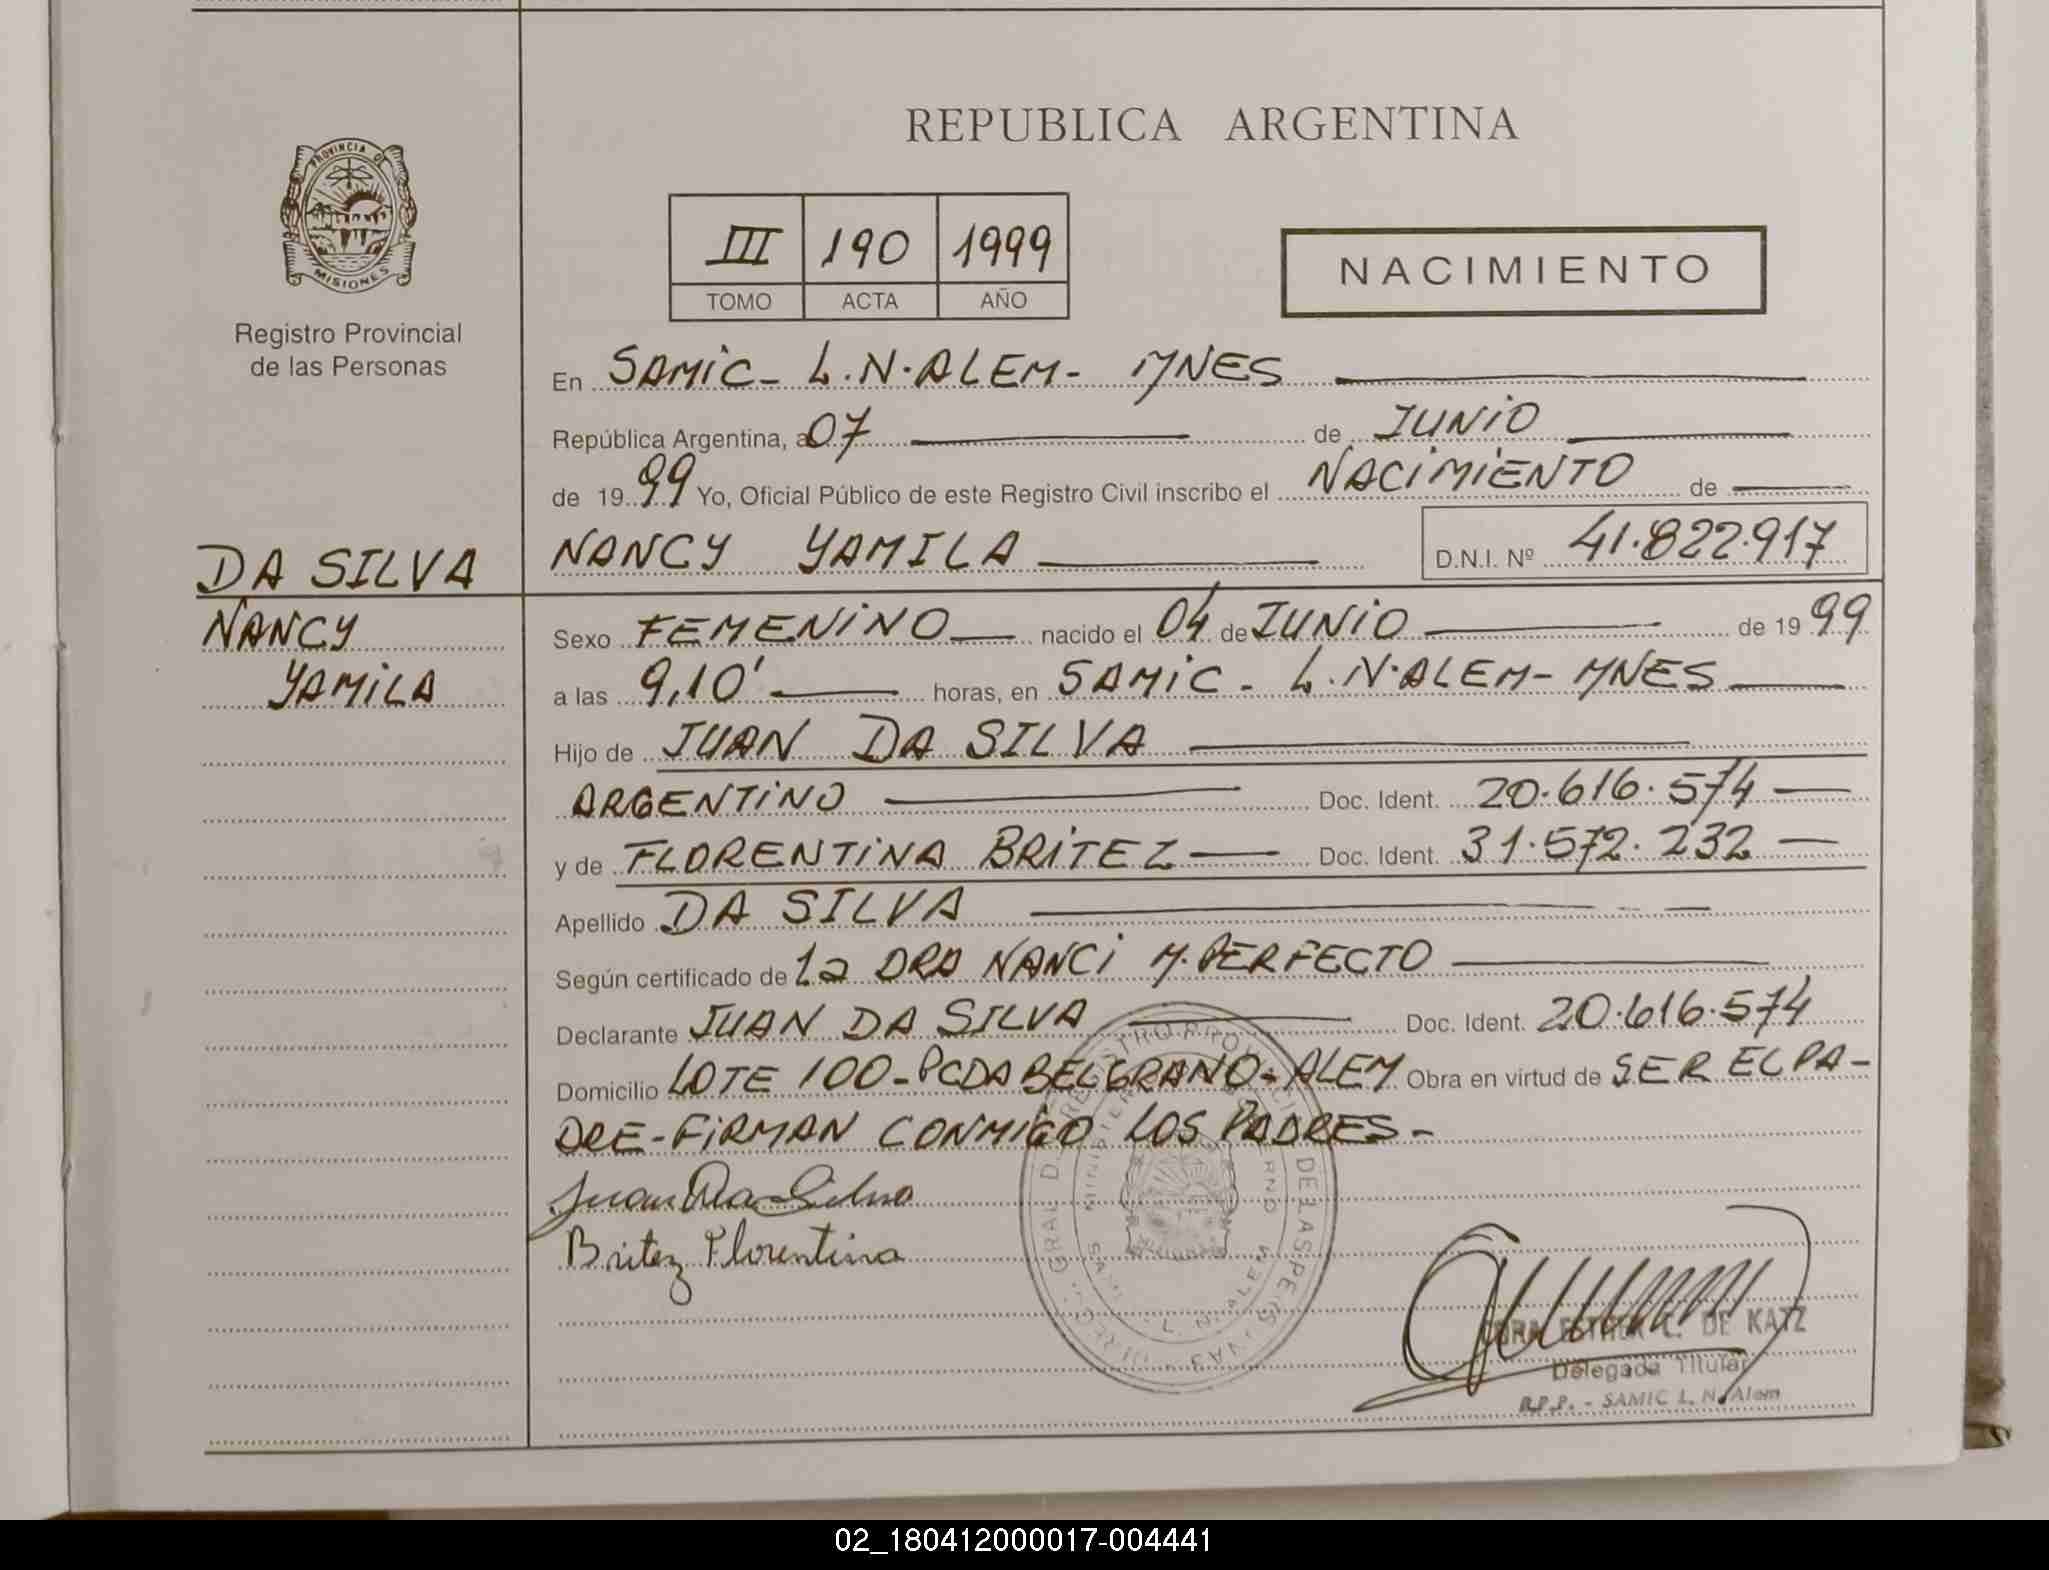 REPUBLICA ARGENTINA
PROVINCIA DE
MISIONES
Registro Provincial
de las Personas
III 190 1999
TOMO ACTA AÑO
NACIMIENTO
En SAMIC - L.N.ALEM - MNES
República Argentina, a 07 de JUNIO
de 1999 Yo, Oficial Público de este Registro Civil inscribo el NACIMIENTO de
NANCY YAMILA D.N.I. Nº 41.822.917
DA SILVA
NANCY
YAMILA
Sexo FEMENINO nacido el 04 de JUNIO de 1999
a las 9,10' horas, en SAMIC - L.N.ALEM - MNES
Hijo de JUAN DA SILVA
ARGENTINO Doc. Ident. 20.616.574
y de FLORENTINA BRITEZ Doc. Ident. 31.572.232
Apellido DA SILVA
Según certificado de La DRA NANCI M. PERFECTO
Declarante JUAN DA SILVA Doc. Ident. 20.616.574
Domicilio LOTE 100 - PCDA BELGRANO - ALEM Obra en virtud de SER EL PA-
DRE - FIRMAN CONMIGO LOS PADRES -
Juan Da Silva
Britez Florentina
ESTHER E. DE KATZ
Delegada Titular
R.P.P. - SAMIC L. N. Alem
02_180412000017-004441